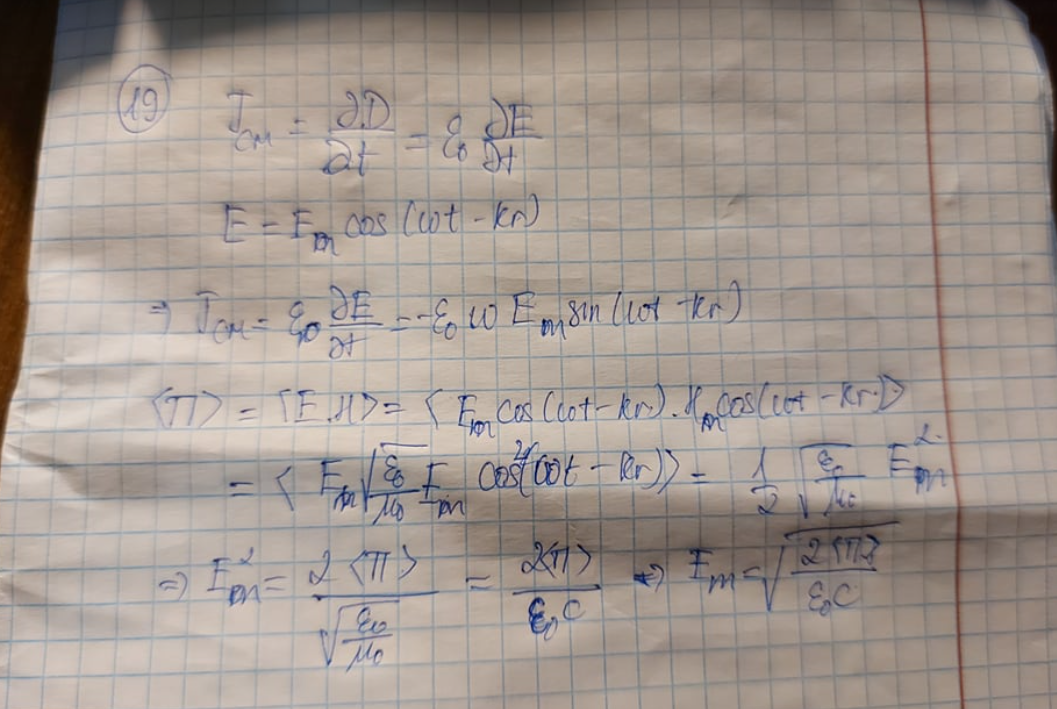 19 J_см = ∂D/∂t = ε₀ ∂E/∂t
E = E_m cos (ωt - kr)
⇒ J_см = ε₀ ∂E/∂t = -ε₀ ω E_m sin (ωt - kr)
⟨П⟩ = ⟨E.H⟩ = ⟨E_m cos (ωt - kr) . H_m cos (ωt - kr)⟩
= ⟨E_m √(ε₀/μ₀) E_m cos²(ωt - kr)⟩ = 1/2 √(ε₀/μ₀) E_m²
⇒ E_m² = 2⟨П⟩ / √(ε₀/μ₀) = 2⟨П⟩/ε₀c ⇒ E_m = √(2⟨П⟩/ε₀c)